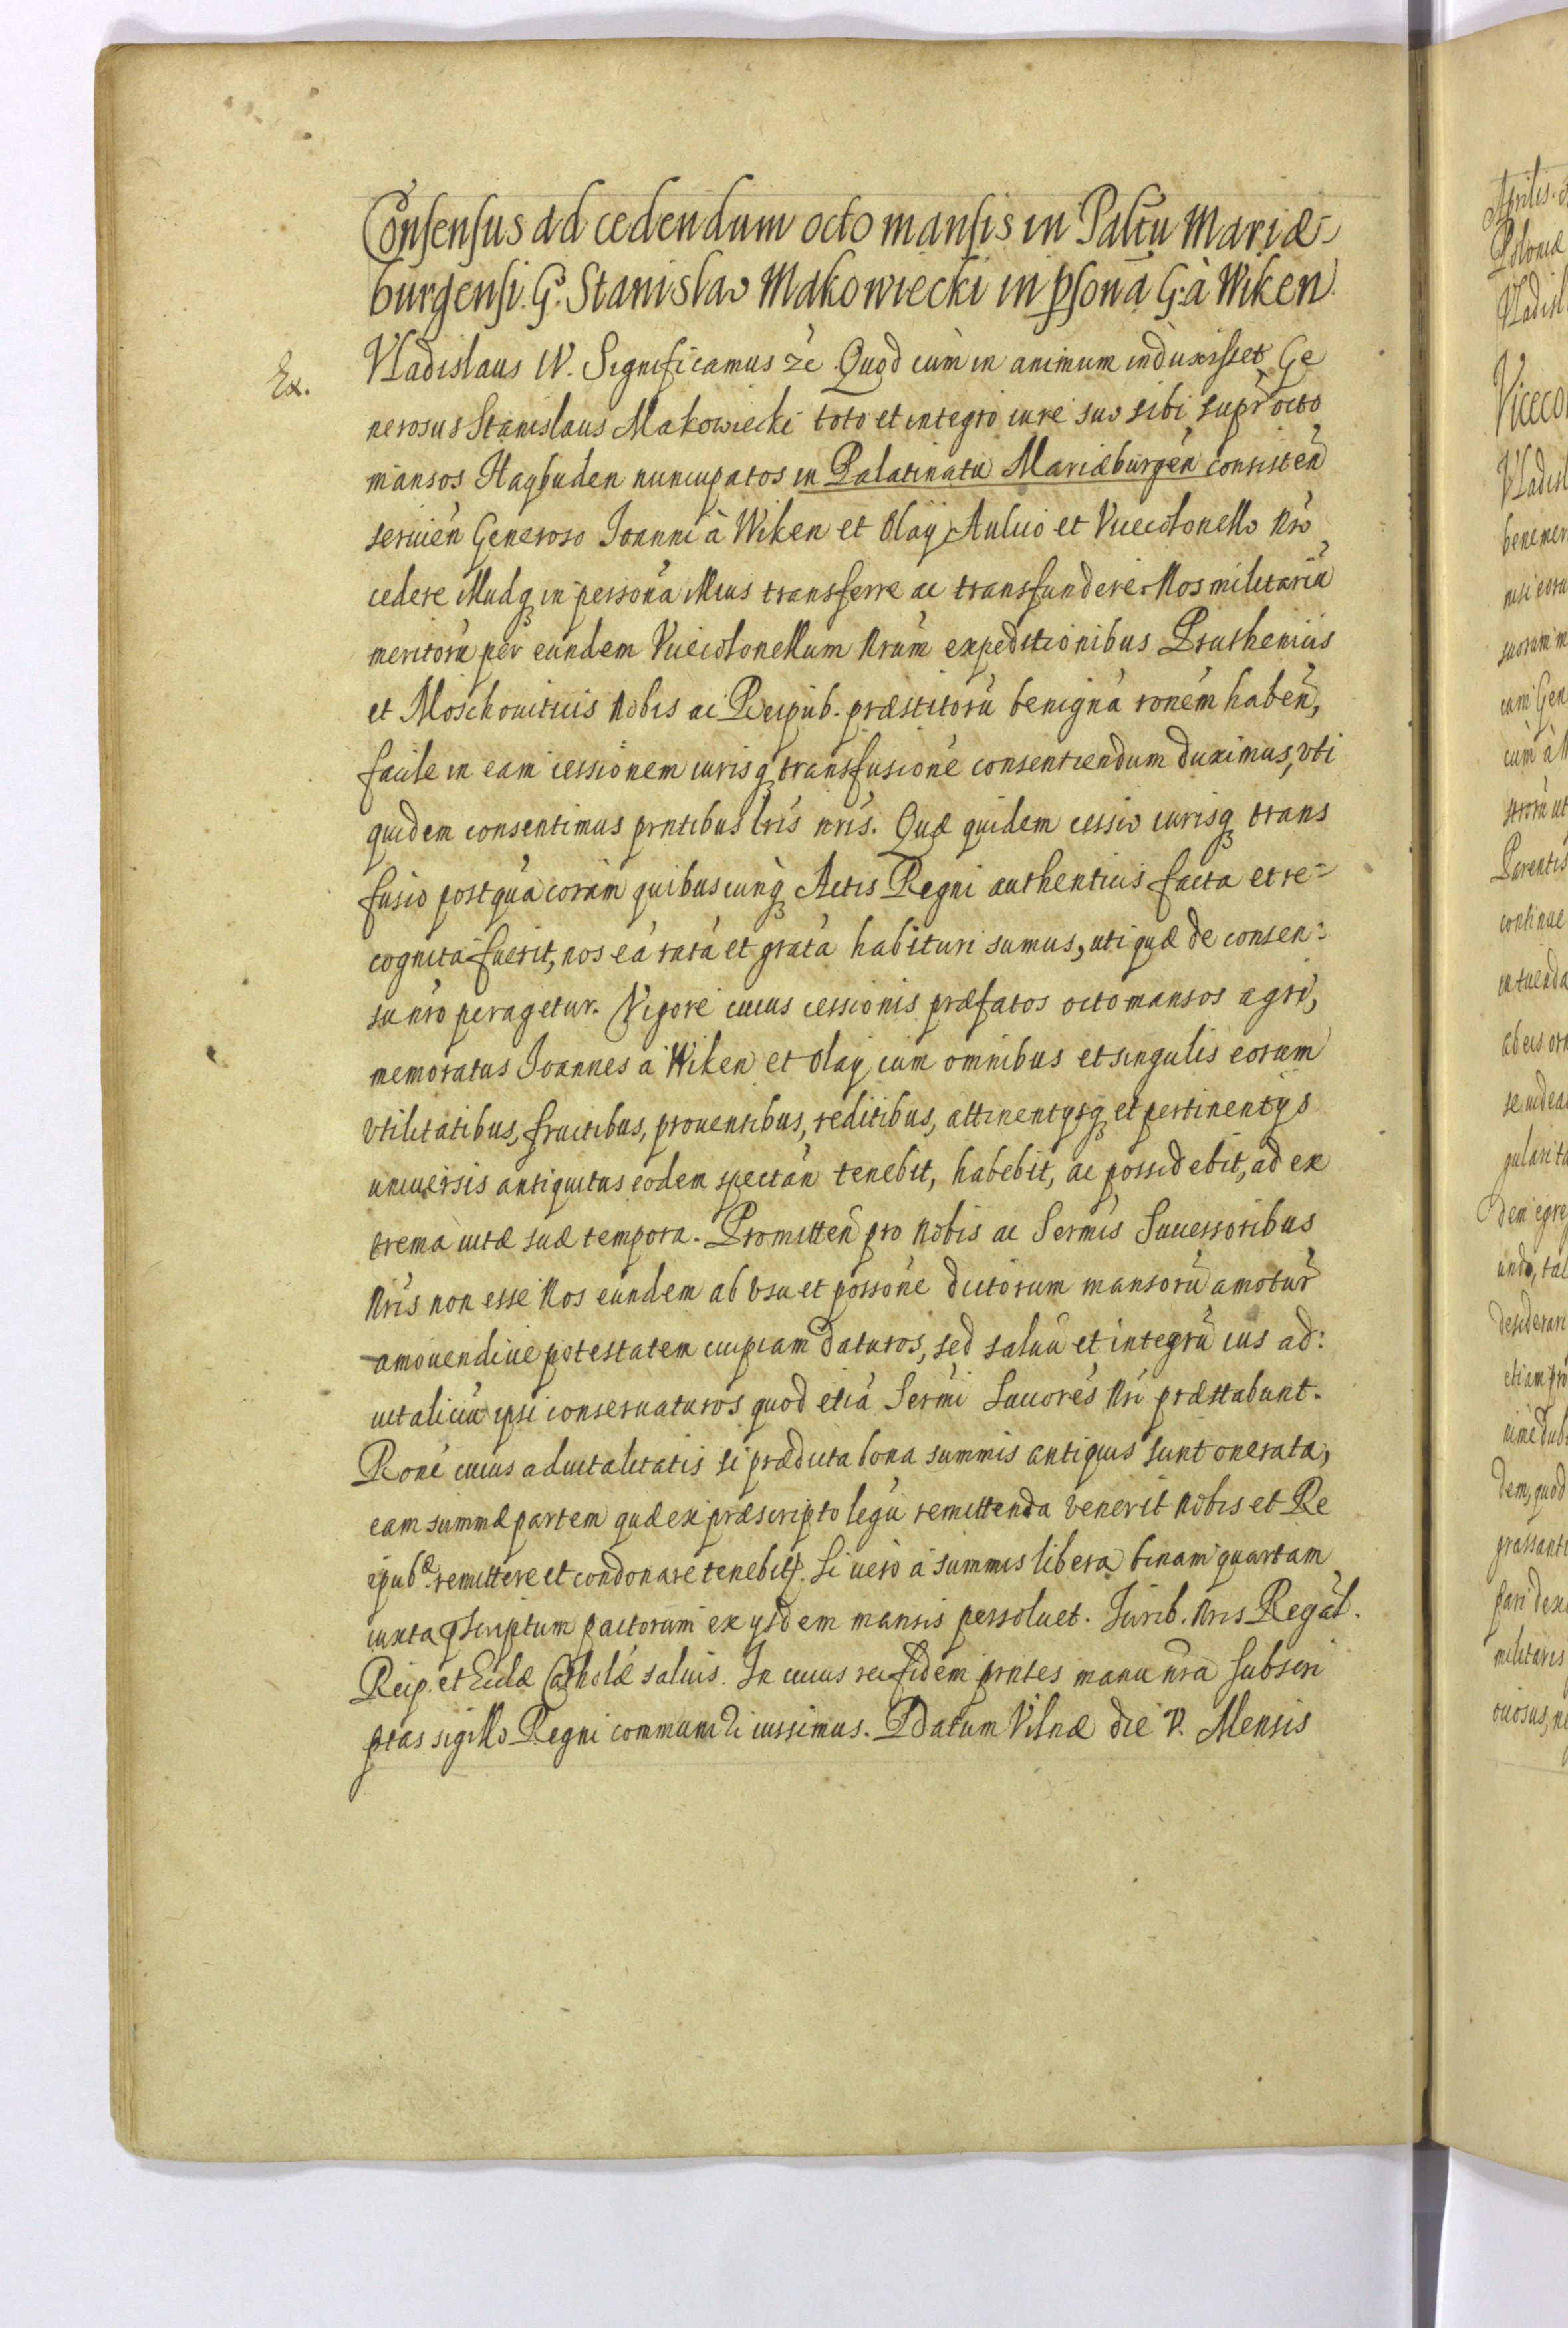 Consensus ad cedendum octo mansis in Paltũ Mariæ-
burgensi. Gº. Stanislao Makowiecki in psonã G. à Wiken
Ex.
Vladislaus IV. Significamus &c. Quod cùm in animum induxisset Ge
nerosus Stanislaus Makowiecki toto et integro iure suo sibi supr octo
mansos Hagbuden nuncupatos in Palatinatu Mariæburgen̄ consisten̄
seruien̄ Generoso Joanni à Wiken et Olay Aulico et Vicecolonello Nrō
cedere illudq́ in personã illius transferre ac transfundere. Nos militariũ
meritorũ per eundem Vicecolonellum Nrūm expeditionibus Pruthenicis
et Moschouiticis Nobis ac Reipub. præstitorũ benignã ronēm haben̄,
facile in eam cessionem iurisq́ transfusionē consentiendum duximus, vti
quidem consentimus pntibus lrīs nrīs. Quæ quidem cessio iurisq́ trans
fusio postquã coram quibuscunq́ Actis Regni authenticis facta et re=
cognita fuerit, nos eã ratã et gratã habituri sumus, uti quæ de consen:
su nrō peragetur. Vigore cuius cessionis præfatos octo mansos agri,
memoratus Joannes à Wiken et Olay cum omnibus et singulis eorum
vtilitatibus, fructibus, prouentibus, reditibus, attinentysq́ et pertinentys
uniuersis antiquitus eodem spectan̄ tenebit, habebit, ac possidebit, ad ex
trema uitæ suæ tempora. Promitten̄ pro Nobis ac Sermīs Successoribus
Nrīs non esse Nos eundem ab vsu et possonē dictorum mansorũ amotur̄
amouendiue potestatem cuipiam daturos, sed saluũ et integrũ ius ad:
uitaliciũ ipsi conseruaturos quod etiã Sermī Succorēs Nrī præstabunt.
Ronē cuius aduitalitatis si prædicta bona summis antiquis sunt onerata,
eam summæ partem quæ ex præscripto legũ remittenda venerit Nobis et Re
ipubcæ remittere et condonare tenebitr. Si uero à summis libera binam quartam
iuxta pscriptum pactorum ex ysdem mansis persoluet. Jurib. Nris Regal.
Reip. et Ecclæ Catholæ saluis. In cuius rei fidem pntes manu nrā subscri
ptas sigillo Regni communiri iussimus. Datum Vilnæ die V. Mensis